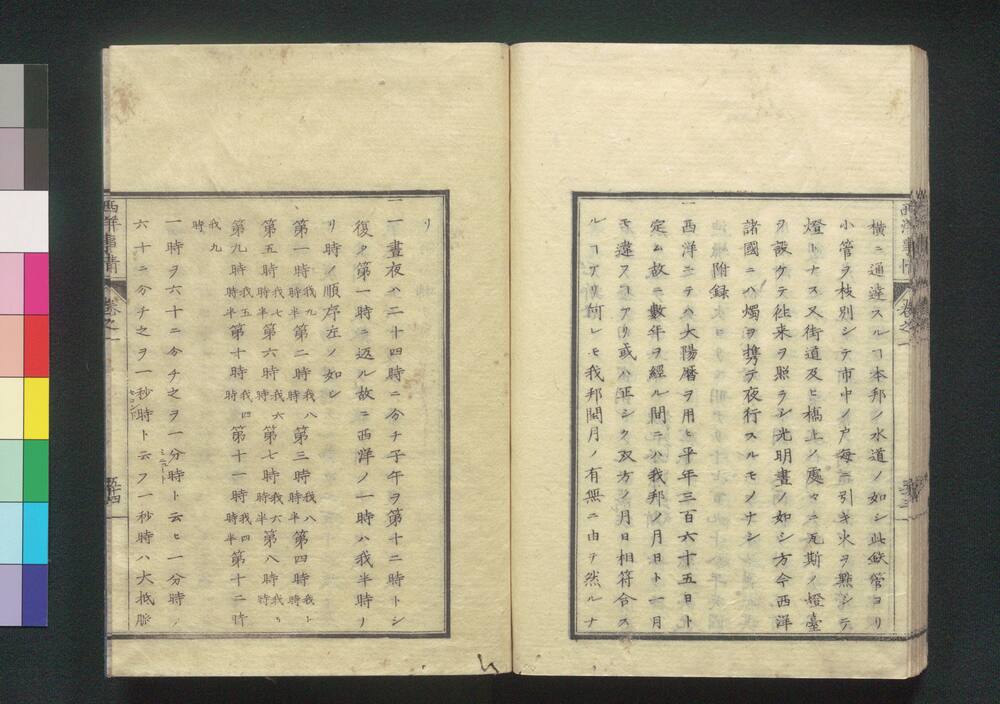 横ニ通達スルヿ本邦ノ水道ノ如シ此鉄管ヨリ
小管ヲ枝別シテ市中ノ戸毎ニ引キ火ヲ點シテ
燈トナス又街道及ヒ橋上ノ處々ニ瓦斯ノ燈臺
ヲ設ケテ往来ヲ照ラシ光明晝ノ如シ方今西洋
諸國ニハ燭ヲ携テ夜行スルモノナシ
附録
一西洋ニテハ大陽暦ヲ用ヒ平年三百六十五日ト
定ム故ニ數年ヲ經ル間ニハ我邦ノ月日ト一月
モ違フヿアリ或ハ正シク双方ノ月日相符合ス
ルヿアリ何レモ我邦閏月ノ有無ニ由テ然ルナ
西洋事情
卷之一
五十三
リ
一一晝夜ハ二十四時ニ分チ子午ヲ第十二時トシ
復タ第一時ニ返ル故ニ西洋ノ一時ハ我半時ナ
リ時ノ順序左ノ如シ
第一時我九時半第二時我八時第三時我八時半第四時我七時
第五時我七時半第六時我六時第七時我六時半第八時我五時
第九時我五時半第十時我四時第十一時我四時半第十二時
我九時
一一時ヲ六十ニ分チ之ヲ一分時ト云ヒ一分時ヲ
六十ニ分チ之ヲ一秒時ト云フ一秒時ハ大抵脈
西洋事情
卷之一
五十四